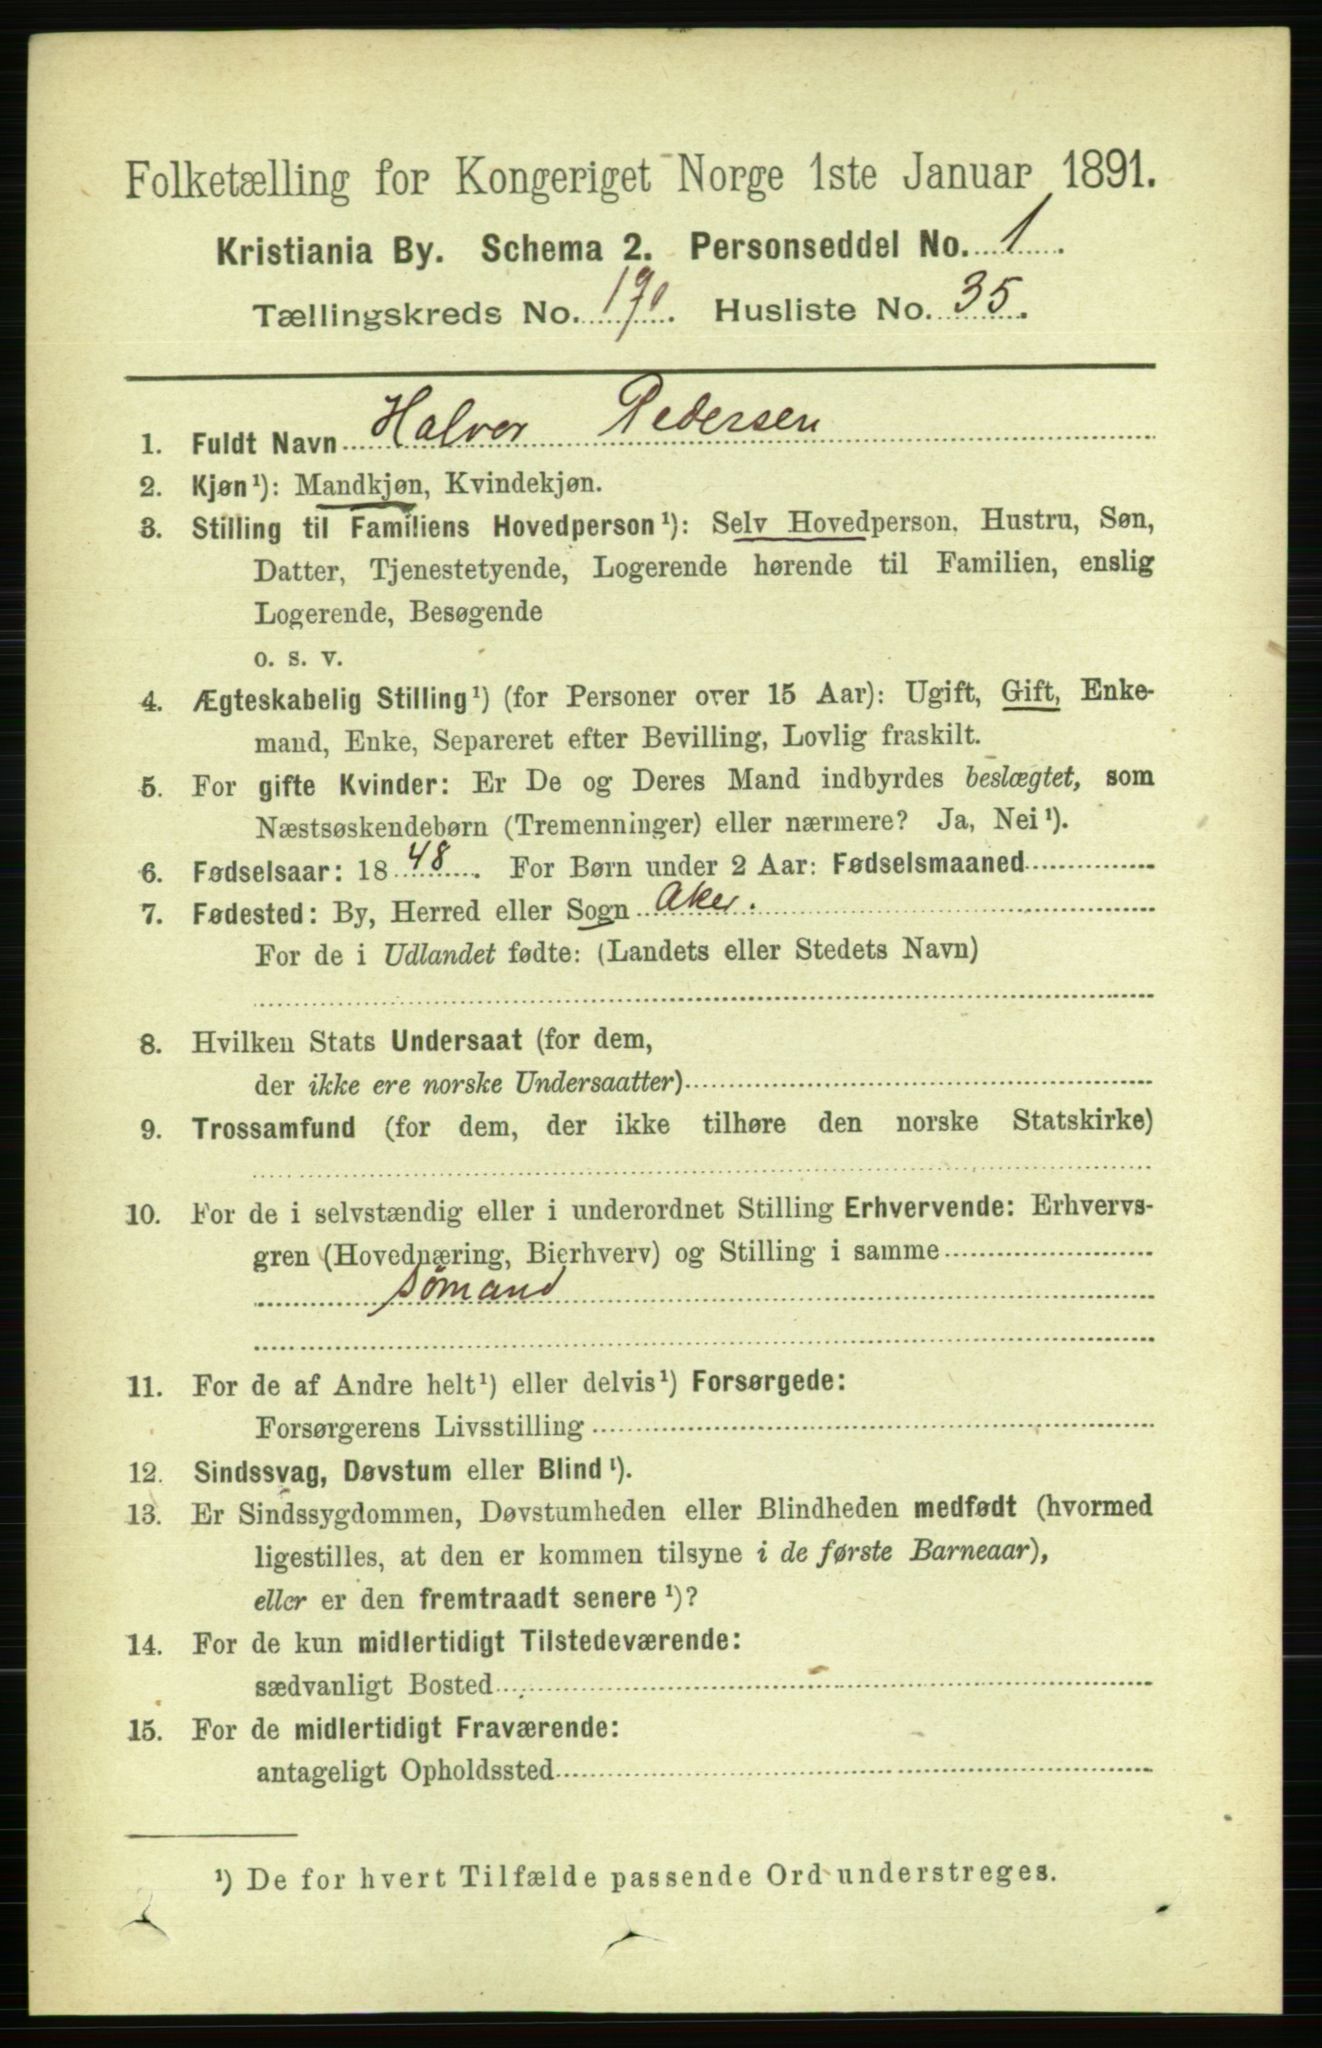 Folketælling for Kongeriget Norge 1ste Januar 1891.
Kristiania By. Schema 2. Personseddel No. 1.
Tællingskreds No. 170. Husliste No. 35.
1. Fuldt Navn Halvor Pedersen
2. Kjøn¹): Mandkjøn, Kvindekjøn.
3. Stilling til Familiens Hovedperson¹): Selv Hovedperson, Hustru, Søn,
Datter, Tjenestetyende, Logerende hørende til Familien, enslig
Logerende, Besøgende
o. s. v.
4. Ægteskabelig Stilling¹) (for Personer over 15 Aar): Ugift, Gift, Enke-
mand, Enke, Separeret efter Bevilling, Lovlig fraskilt.
5. For gifte Kvinder: Er De og Deres Mand indbyrdes beslægtet, som
Næstsøskendebørn (Tremenninger) eller nærmere? Ja, Nei¹).
6. Fødselsaar: 1848. For Børn under 2 Aar: Fødselsmaaned
7. Fødested: By, Herred eller Sogn Aker.
For de i Udlandet fødte: (Landets eller Stedets Navn)
8. Hvilken Stats Undersaat (for dem,
der ikke ere norske Undersaatter)
9. Trossamfund (for dem, der ikke tilhøre den norske Statskirke)
10. For de i selvstændig eller i underordnet Stilling Erhvervende: Erhvervs-
gren (Hovednæring, Bierhverv) og Stilling i samme
Sømand
11. For de af Andre helt¹) eller delvis¹) Forsørgede:
Forsørgerens Livsstilling
12. Sindssvag, Døvstum eller Blind¹).
13. Er Sindssygdommen, Døvstumheden eller Blindheden medfødt (hvormed
ligestilles, at den er kommen tilsyne i de første Barneaar),
eller er den fremtraadt senere¹)?
14. For de kun midlertidigt Tilstedeværende:
sædvanligt Bosted
15. For de midlertidigt Fraværende:
antageligt Opholdssted
¹) De for hvert Tilfælde passende Ord understreges.